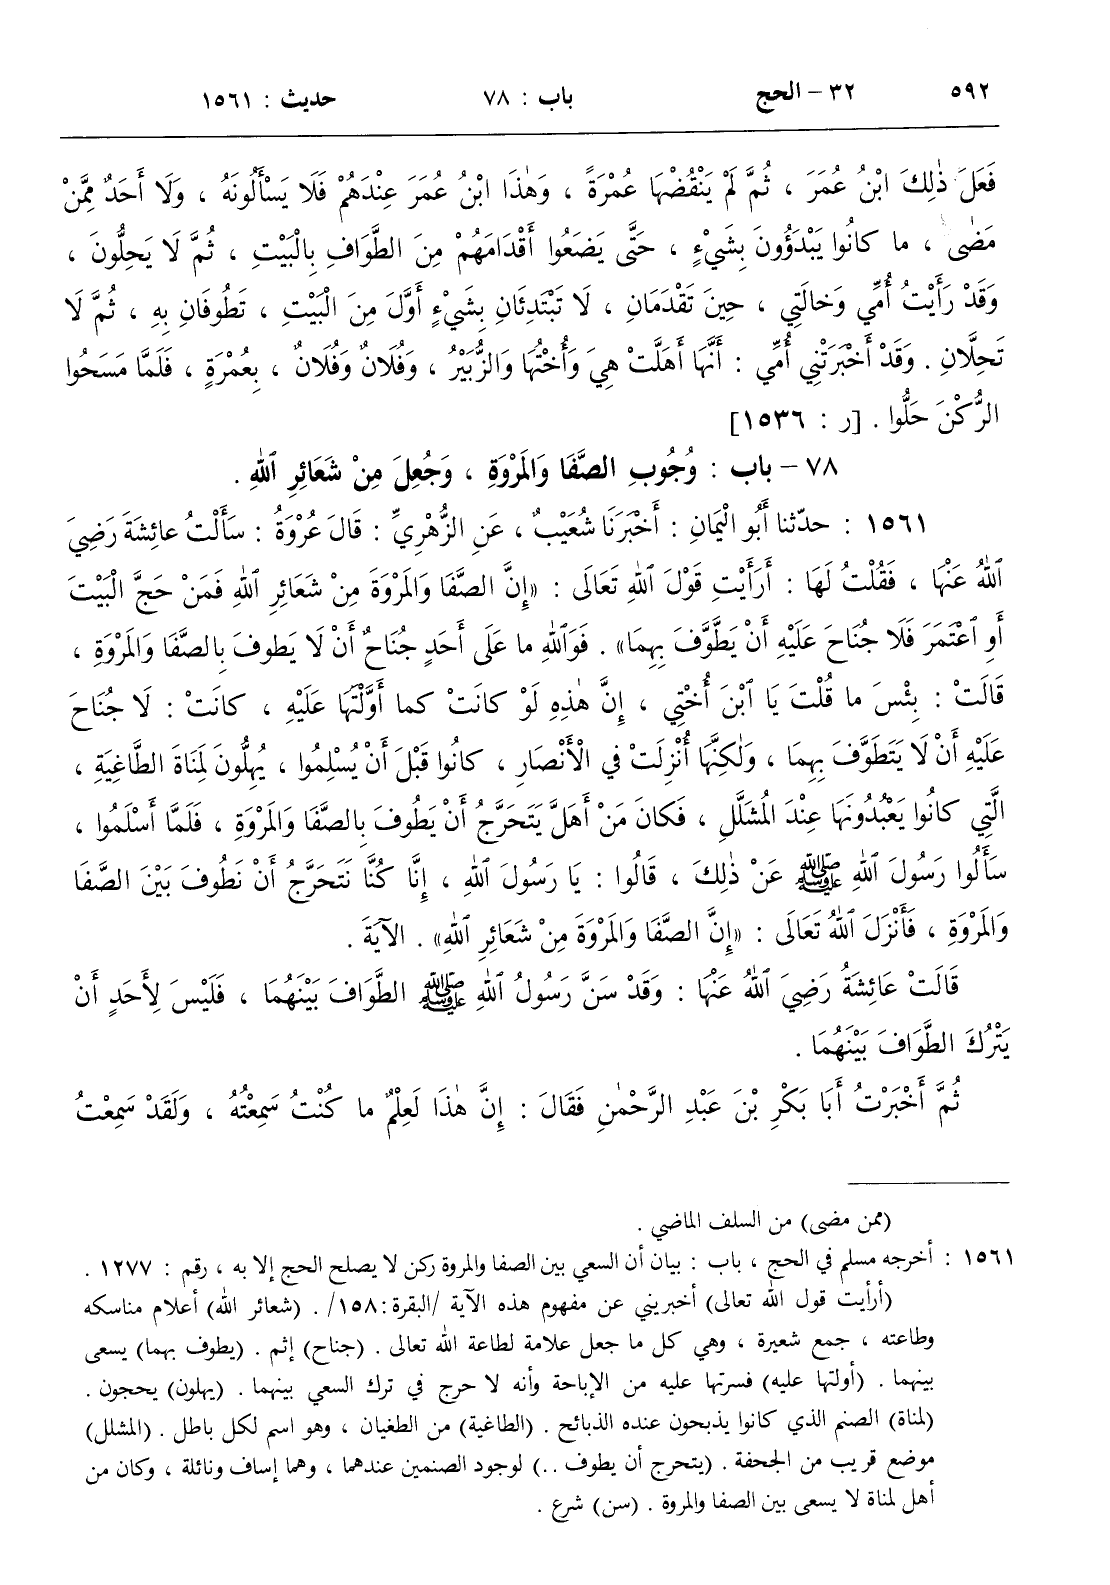 ٥٩٢ ٣٢ – الحج باب : ٧٨ حديث : ١٥٦١
فَعَلَ ذٰلِكَ ابْنُ عُمَرَ ، ثُمَّ لَمْ يَنْقُضْهَا عُمْرَةً ، وَهٰذَا ابْنُ عُمَرَ عِنْدَهُمْ فَلَا يَسْأَلُونَهُ ، وَلَا أَحَدٌ مِمَّنْ
مَضَى ، ما كانُوا يَبْدَؤُونَ بِشَيْءٍ ، حَتَّى يَضَعُوا أَقْدَامَهُمْ مِنَ الطَّوَافِ بِالْبَيْتِ ، ثُمَّ لَا يَحِلُّونَ ،
وَقَدْ رَأَيْتُ أُمِّي وَخالَتِي ، حِينَ تَقْدَمَانِ ، لَا تَبْتَدِئَانِ بِشَيْءٍ أَوَّلَ مِنَ الْبَيْتِ ، تَطُوفَانِ بِهِ ، ثُمَّ لَا
تَحِلَّانِ . وَقَدْ أَخْبَرَتْنِي أُمِّي : أَنَّهَا أَهَلَّتْ هِيَ وَأُخْتُهَا وَالزُّبَيْرُ ، وَفُلَانٌ وَفُلَانٌ ، بِعُمْرَةٍ ، فَلَمَّا مَسَحُوا
الرُّكْنَ حَلُّوا . [ر : ١٥٣٦]
٧٨ – باب : وُجُوبِ الصَّفَا وَالمَرْوَةِ ، وَجُعِلَ مِنْ شَعَائِرِ ٱللهِ .
١٥٦١ : حدّثنا أَبُو الْيَمانِ : أَخْبَرَنَا شُعَيْبٌ ، عَنِ الزُّهْرِيِّ : قَالَ عُرْوَةُ : سَأَلْتُ عائِشَةَ رَضِيَ
ٱللهُ عَنْهَا ، فَقُلْتُ لَهَا : أَرَأَيْتِ قَوْلَ ٱللهِ تَعَالَى : «إِنَّ الصَّفَا وَالمَرْوَةَ مِنْ شَعَائِرِ ٱللهِ فَمَنْ حَجَّ الْبَيْتَ
أَوِ ٱعْتَمَرَ فَلَا جُنَاحَ عَلَيْهِ أَنْ يَطَّوَّفَ بِهِمَا» . فَوَٱللهِ ما عَلَى أَحَدٍ جُنَاحٌ أَنْ لَا يَطوفَ بِالصَّفَا وَالمَرْوَةِ ،
قَالَتْ : بِئْسَ ما قُلْتَ يَا ٱبْنَ أُخْتِي ، إِنَّ هٰذِهِ لَوْ كانَتْ كما أَوَّلْتَهَا عَلَيْهِ ، كانَتْ : لَا جُنَاحَ
عَلَيْهِ أَنْ لَا يَتَطَوَّفَ بِهِمَا ، وَلٰكِنَّهَا أُنْزِلَتْ في الْأَنْصَارِ ، كانُوا قَبْلَ أَنْ يُسْلِمُوا ، يُهِلُّونَ لِمَنَاةَ الطَّاغِيَةِ ،
الَّتِي كانُوا يَعْبُدُونَهَا عِنْدَ المُشَلَّلِ ، فَكانَ مَنْ أَهَلَّ يَتَحَرَّجُ أَنْ يَطُوفَ بِالصَّفَا وَالمَرْوَةِ ، فَلَمَّا أَسْلَمُوا ،
سَأَلُوا رَسُولَ ٱللهِ ﷺ عَنْ ذٰلِكَ ، قَالُوا : يَا رَسُولَ ٱللهِ ، إِنَّا كُنَّا نَتَحَرَّجُ أَنْ نَطُوفَ بَيْنَ الصَّفَا
وَالمَرْوَةِ ، فَأَنْزَلَ ٱللهُ تَعَالَى : «إِنَّ الصَّفَا وَالمَرْوَةَ مِنْ شَعَائِرِ ٱللهِ» . الآيَةَ .
قَالَتْ عَائِشَةُ رَضِيَ ٱللهُ عَنْهَا : وَقَدْ سَنَّ رَسُولُ ٱللهِ ﷺ الطَّوَافَ بَيْنَهُمَا ، فَلَيْسَ لِأَحَدٍ أَنْ
يَتْرُكَ الطَّوَافَ بَيْنَهُمَا .
ثُمَّ أَخْبَرْتُ أَبَا بَكْرِ بْنَ عَبْدِ الرَّحْمٰنِ فَقَالَ : إِنَّ هٰذَا لَعِلْمٌ ما كُنْتُ سَمِعْتُهُ ، وَلَقَدْ سَمِعْتُ
(ممن مضى) من السلف الماضي .
١٥٦١ : أخرجه مسلم في الحج ، باب : بيان أن السعي بين الصفا والمروة ركن لا يصلح الحج إلا به ، رقم : ١٢٧٧ .
(أرأيت قول الله تعالى) أخبريني عن مفهوم هذه الآية /البقرة:١٥٨/ . (شعائر الله) أعلام مناسكه
وطاعته ، جمع شعيرة ، وهي كل ما جعل علامة لطاعة الله تعالى . (جناح) إثم . (يطوف بهما) يسعى
بينهما . (أولتها عليه) فسرتها عليه من الإباحة وأنه لا حرج في ترك السعي بينهما . (يهلون) يحجون .
(لمناة) الصنم الذي كانوا يذبحون عنده الذبائح . (الطاغية) من الطغيان ، وهو اسم لكل باطل . (المشلل)
موضع قريب من الجحفة . (يتحرج أن يطوف ..) لوجود الصنمين عندهما ، وهما إساف ونائلة ، وكان من
أهل لمناة لا يسعى بين الصفا والمروة . (سن) شرع .